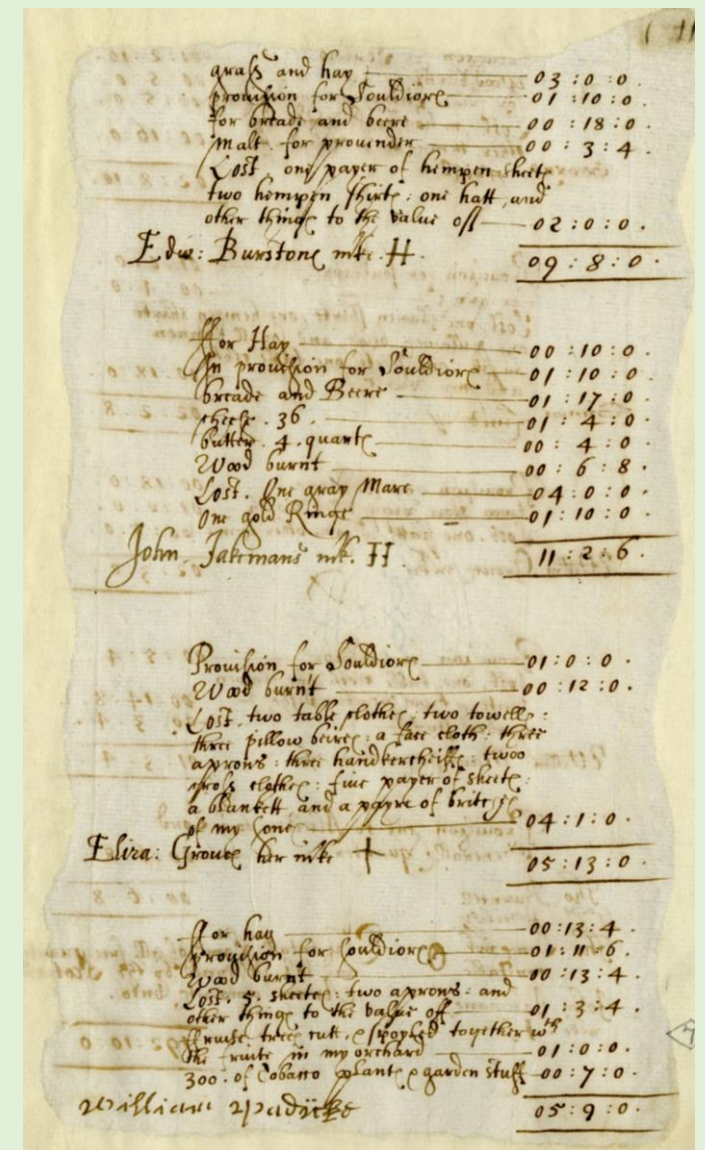 ( 11
grass and hay 03 : 0 : 0 .
provision for Souldiors 01 : 10 : 0 .
for breade and beere 00 : 18 : 0 .
Malt for provender 00 : 3 : 4 .
Lost, one payer of hempen sheets
two hempen shirts : one hatt, and
other things to the value off 02 : 0 : 0 .
Edw: Burstons mke. H . 09 : 8 : 0 .
ffor Hay 00 : 10 : 0 .
In provision for Souldiors 01 : 10 : 0 .
breade and Beere 01 : 17 : 0 .
cheese . 36 . 01 : 4 : 0 .
butter . 4 . quarts 00 : 4 : 0 .
Wood burnt 00 : 6 : 8 .
Lost. One gray Mare 04 : 0 : 0 .
One gold Ringe 01 : 10 : 0 .
John Jakemans mk. H . 11 : 2 : 6 .
Provision for Souldiors 01 : 0 : 0 .
Wood burnt 00 : 12 : 0 .
Lost, two table clothes : two towells :
three pillow beires : a face cloth : three
aprons : three handkercheiffs : twoo
cross clothes : five payer of sheets :
a blankett, and a payre of
of my sons 04 : 1 : 0 .
Eliza: Groves her mke + 05 : 13 : 0 .
ffor hay 00 : 13 : 4 .
provision for souldiors 01 : 11 : 6 .
Wood burnt 00 : 13 : 4 .
Lost . 5 . sheetes : two aprons : and
other things to the value off 01 : 3 : 4 .
ffruite trees cutt, & spoyled together wth
the fruite in my orchard 01 : 0 : 0 .
300 . of Tobacco plants & garden stuff 00 : 7 : 0 .
William 05 : 9 : 0 .